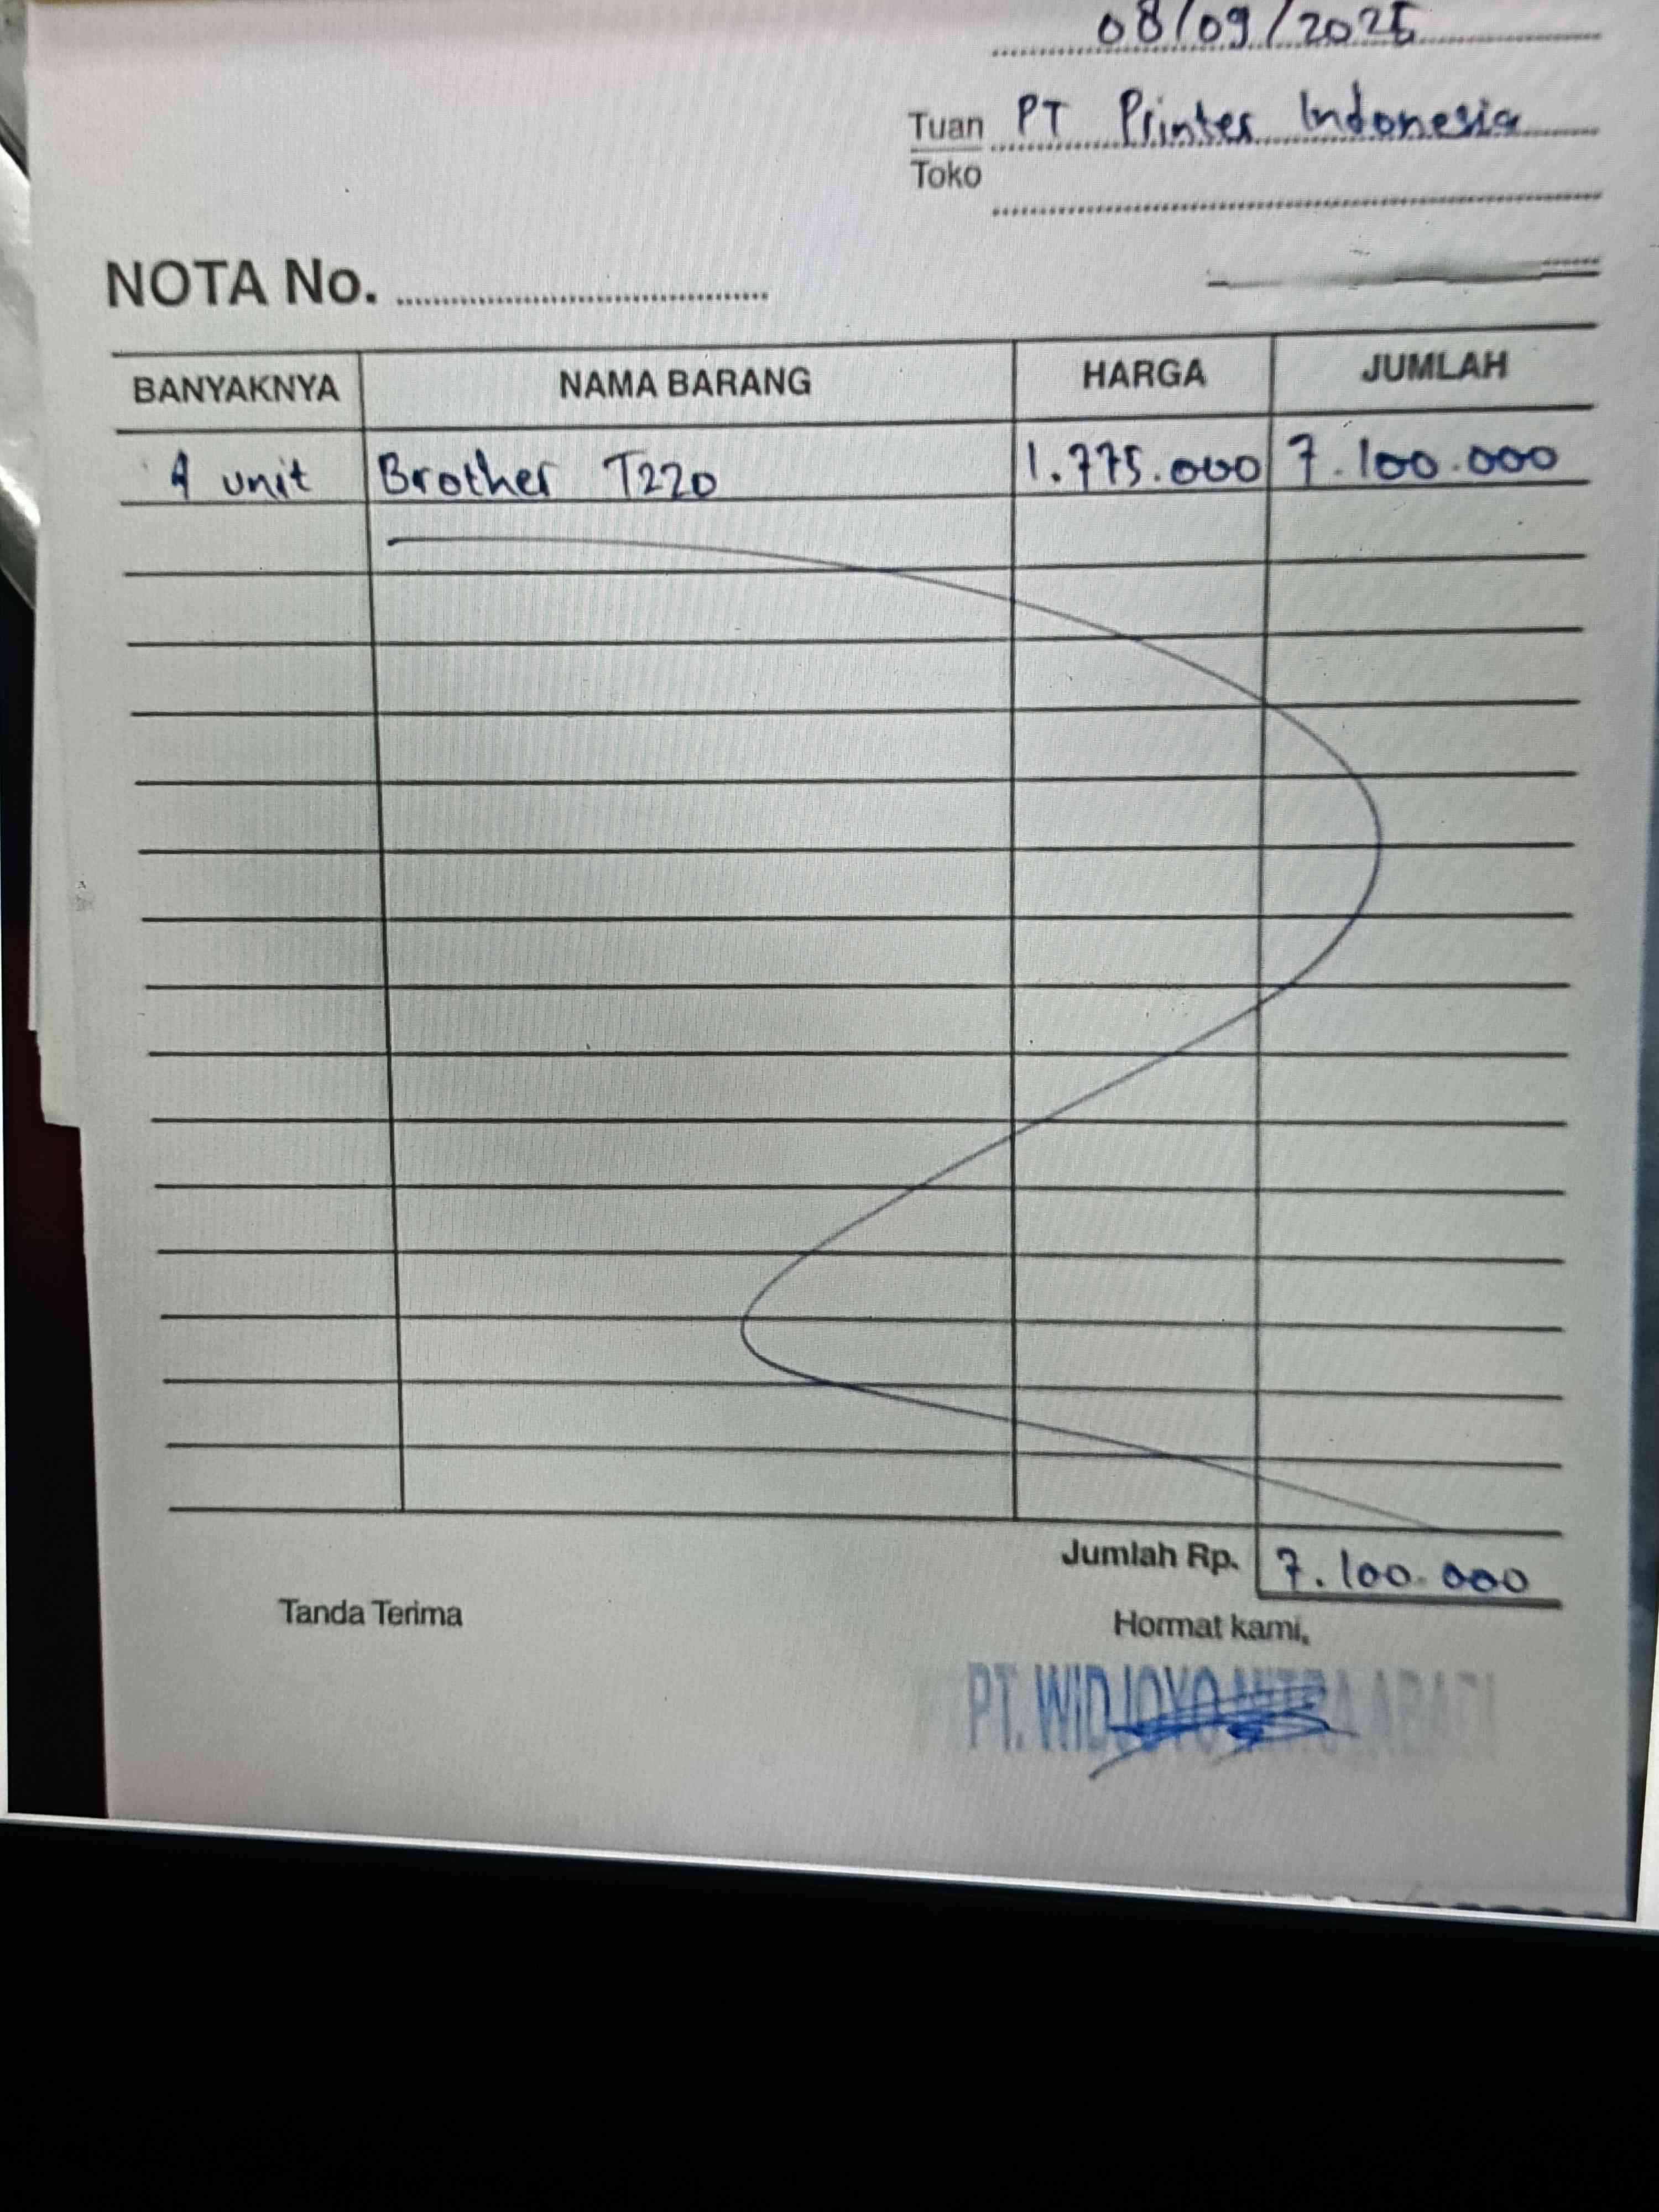 08/09/2025
Tuan PT Printer Indonesia
Toko
NOTA No.
BANYAKNYA NAMA BARANG HARGA JUMLAH
4 unit Brother T220 1.775.000 7.100.000
Jumlah Rp. 7.100.000
Tanda Terima Hormat kami,
PT. WIDJOYO MITRA ABADI